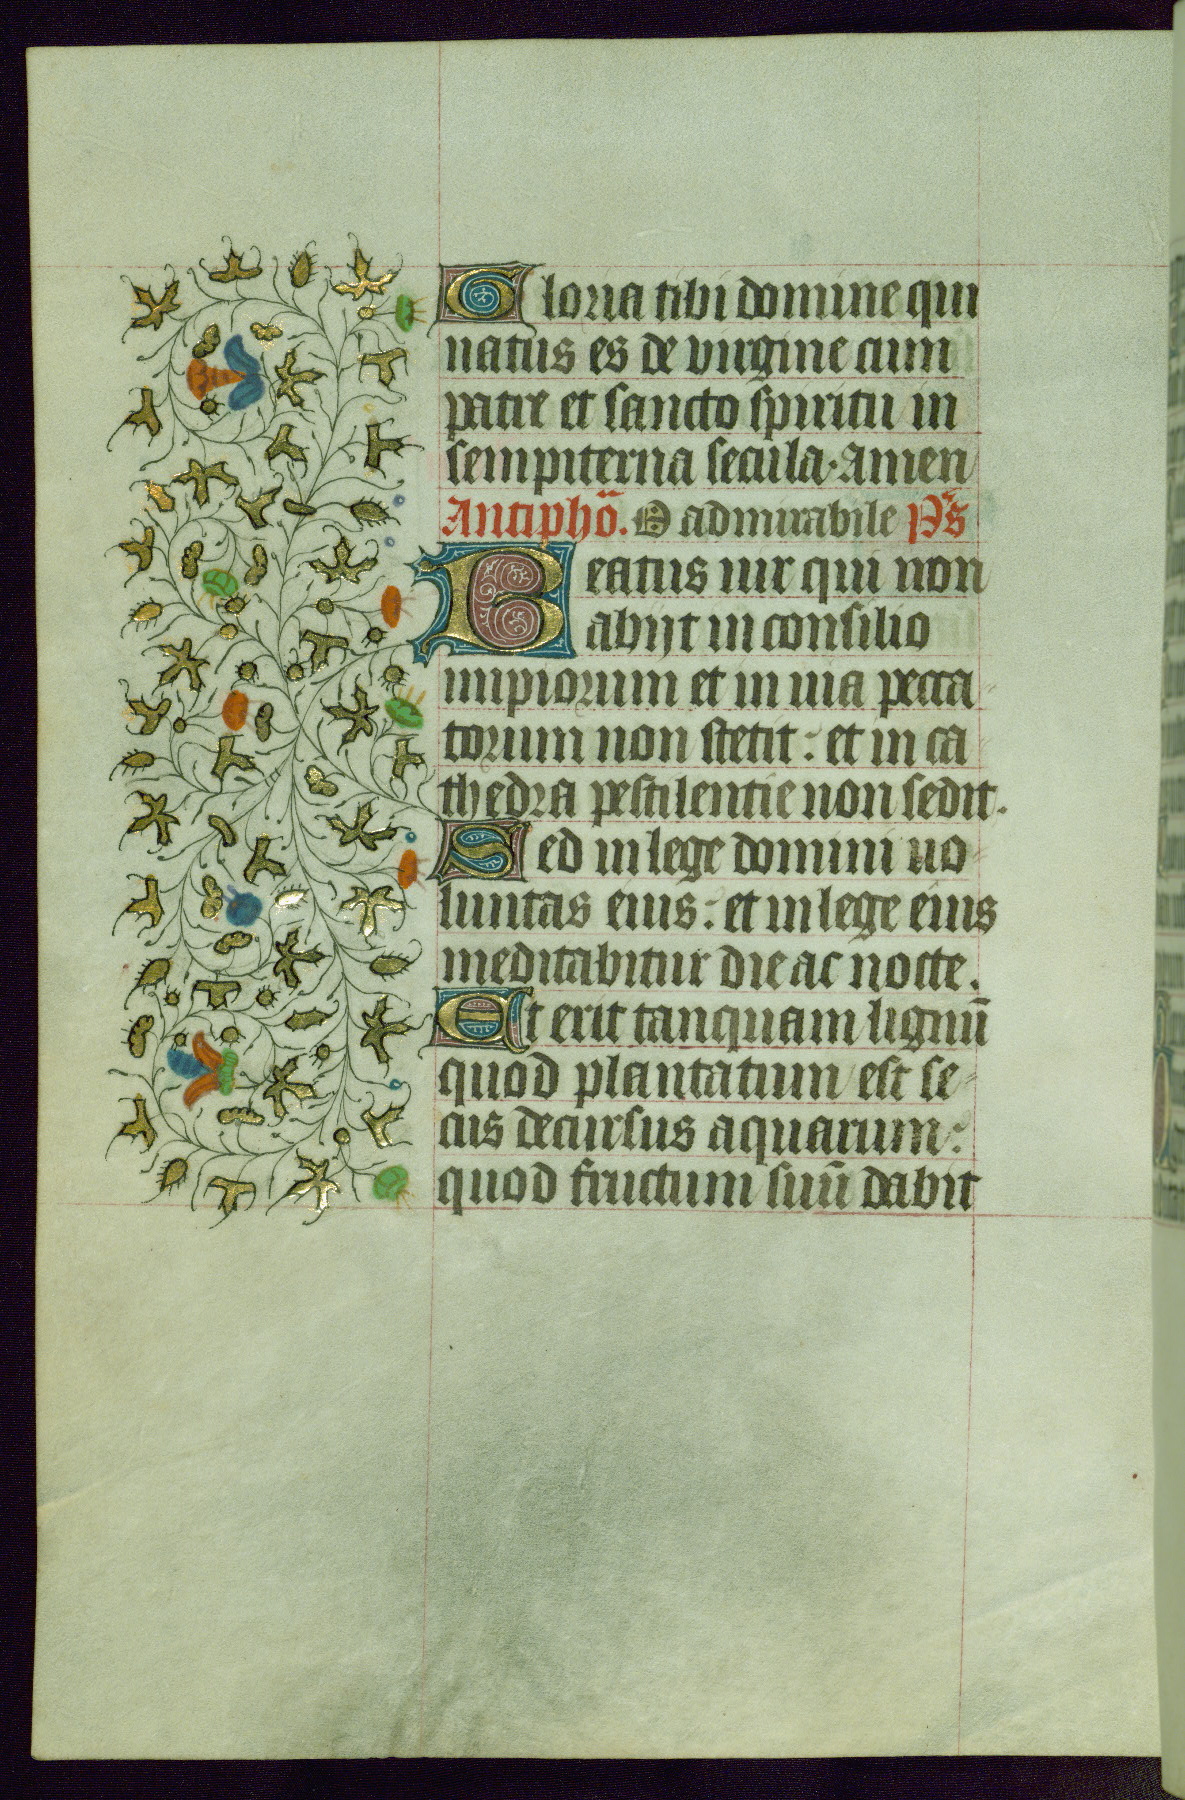 Gloria tibi domine qui
natus es de virgine cum
patre et sancto spiritu in
sempiterna secula. Amen
Antiphō. O admirabile Ps̄
Beatus uir qui non
abijt in consilio
impiorum et in uia pecca-
torum non stetit: et in ca-
thedra pestilentie non sedit.
Sed in lege domini uo-
luntas eius: et in lege eius
meditabitur die ac nocte.
Et erit tanquam lignū
quod plantatum est se-
cus decursus aquarum:
quod fructum suū dabit